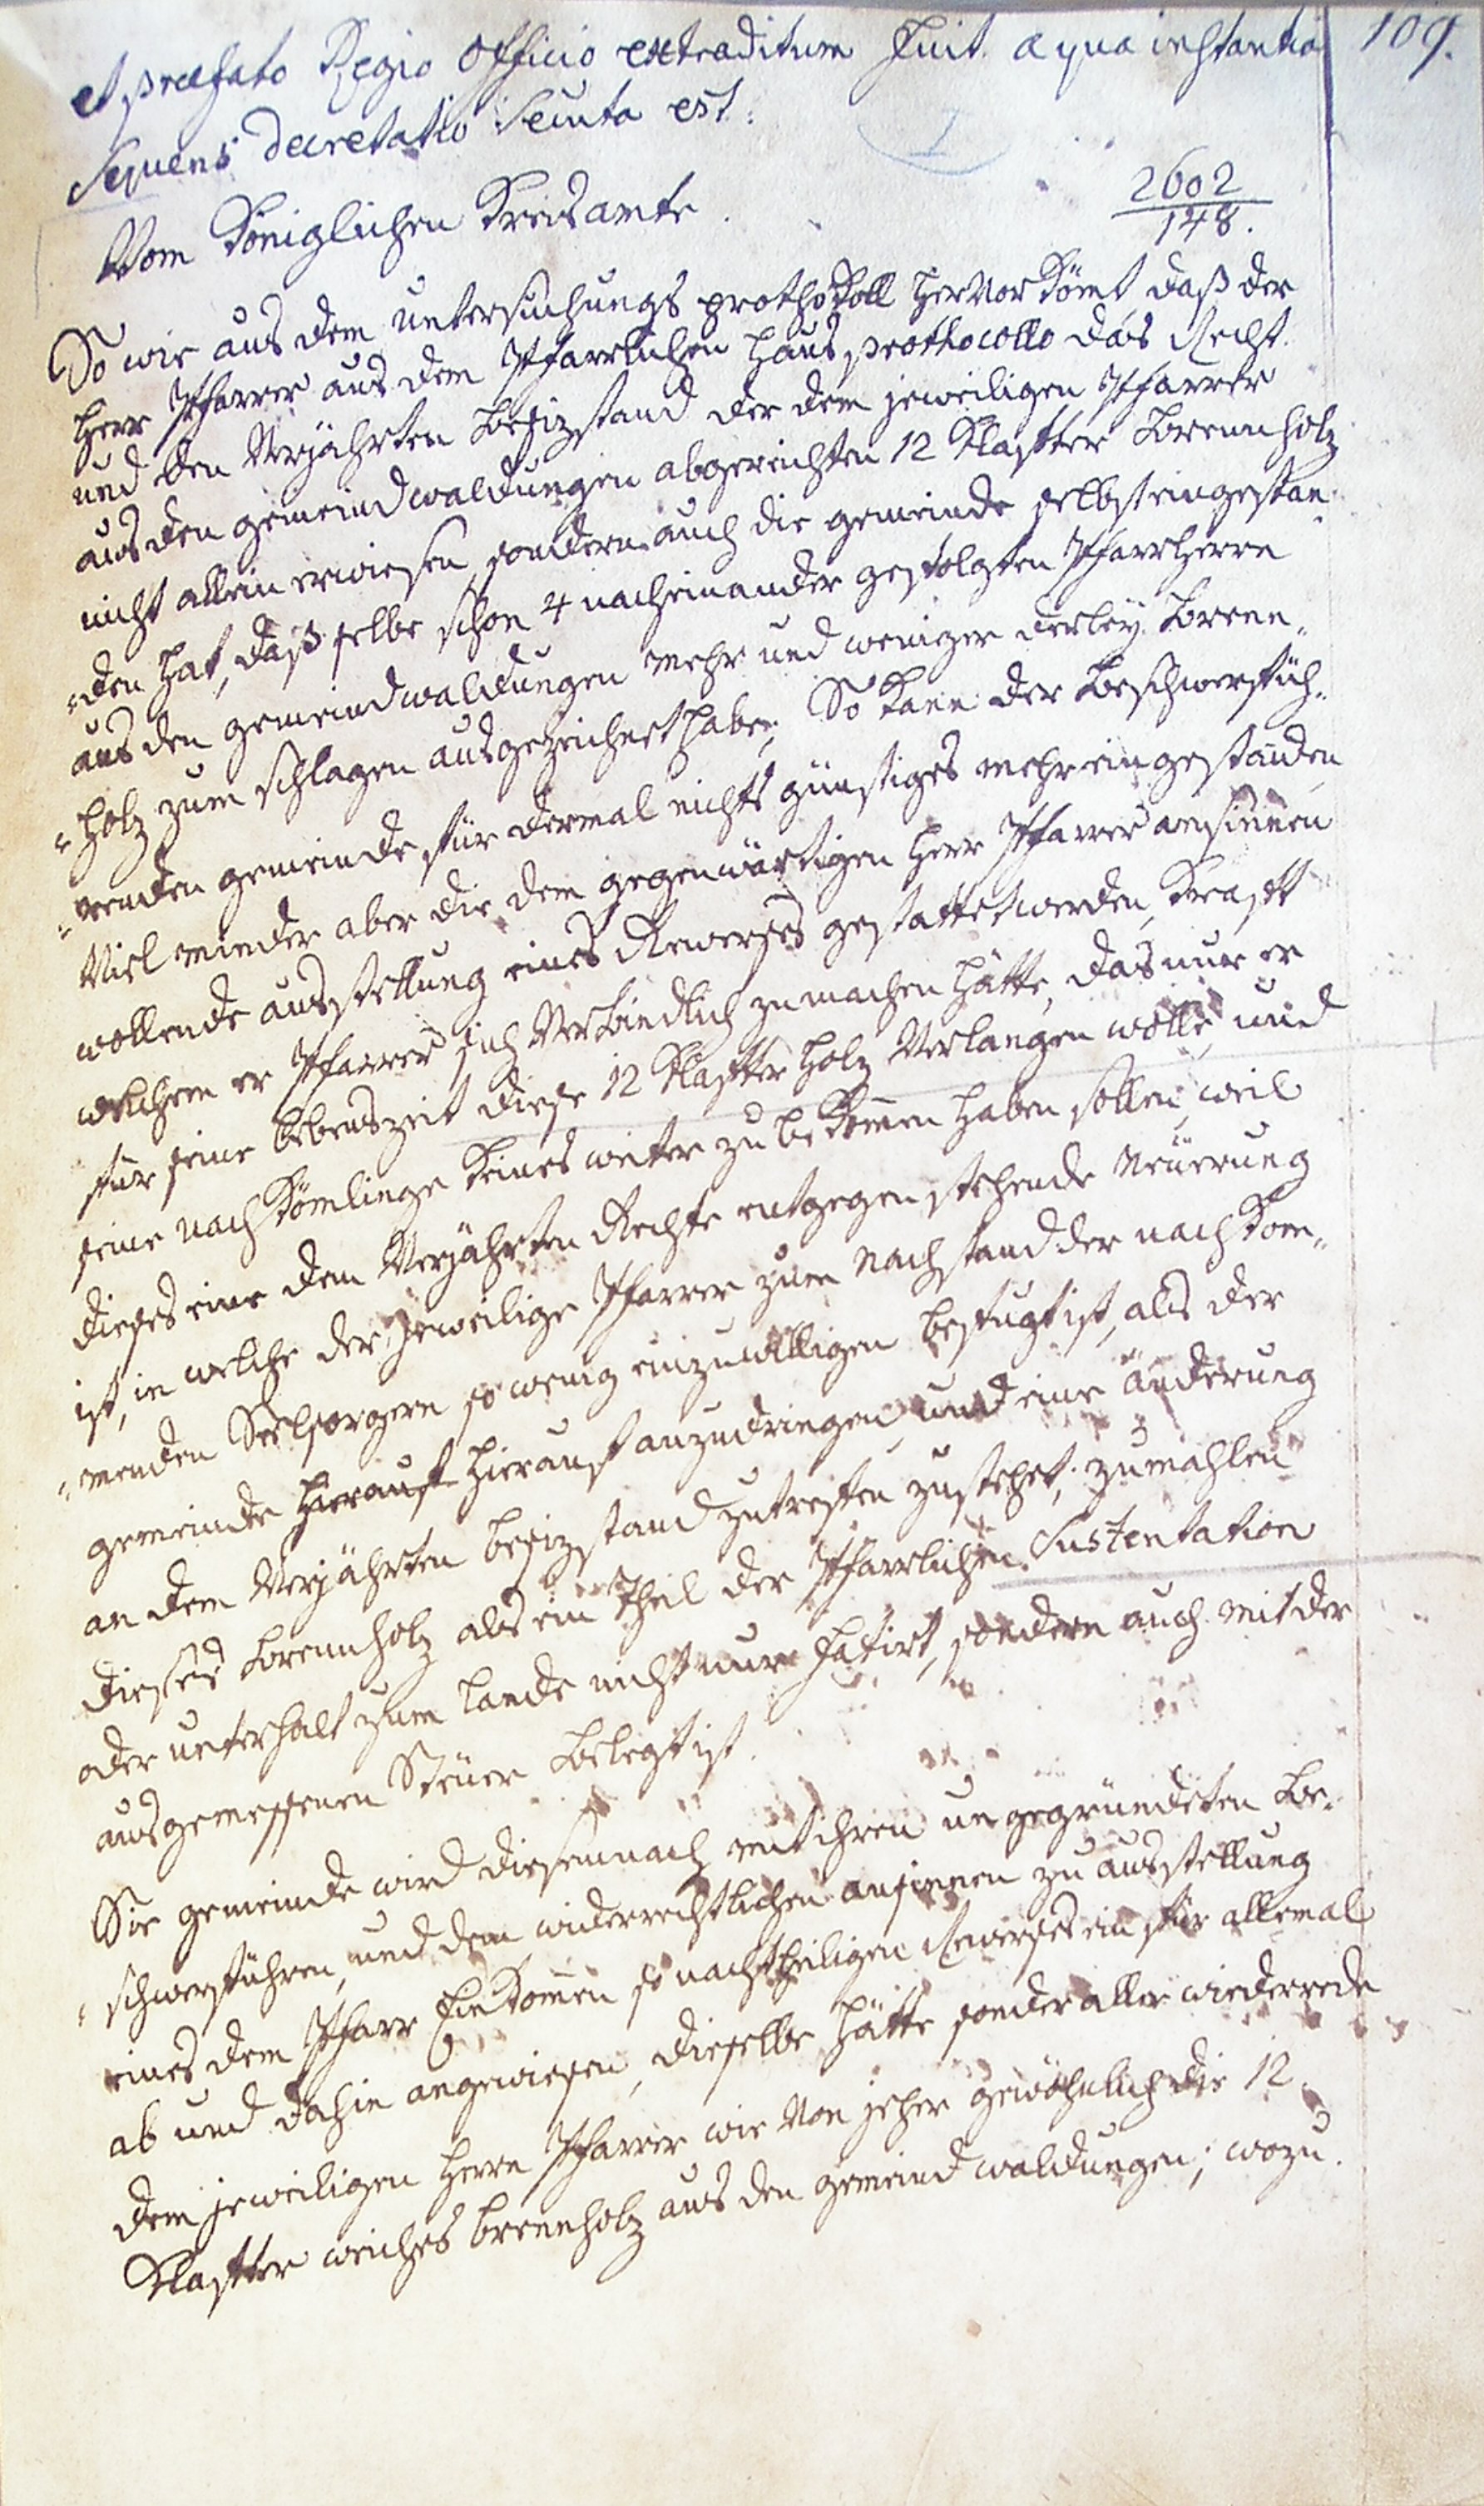 et præfato Regio Officio extraditum Fuit. a qua instantia 109.
Sequens decretatio Secuta est:
Vom Königlichen Kreisamte.
2602
148.
So wie aus dem untersuchungs prothokoll hervor kömt, daß der
Herr Pfarrer aus dem Pfarrlichen Haus prothocollo das Recht
und den Verjährten Besizstand der dem jeweiligen Pfarrer
aus den gemeindwaldungen abgereichten 12 Klaftter Brennholz
nicht allein erwiesen, sondern auch die gemeinde selbst eingestan„
„den hat, daß selbe schon 4 nacheinander gefolgten Pfarrherrn
aus den gemeindwaldungen mehr und weniger derley Brenn„
„holz zum schlagen ausgezeichnet haben; So kann der Beschwerfüh„
„renden gemeinde für dermal nichts günstiges mehr eingestanden,
Viel minder aber die dem gegenwärtigen Herr Pfarrer ansinnen
wollende ausstellung eines Reverses gestattet werden, Kraftt
welchem er Pfarrer sich Verbindlich zumachen hätte, das nur er
für seine lebenszeit diese 12 Klaftter Holz Verlangen wolle, und
seine nachkömlinge keines weiter zu bekommen haben sollen, weil
dieses eine dem Verjährten Rechte entgegen stehende Neuerung
ist, in welche der jeweilige Pfarrer zum Nachstand der nachkom„
„menden Seelsorgern so wenig einzuwilligen befugt ist, als der
gemeinde hierauf hierauf anzudringen, und eine änderung
an dem Verjährten besizstand zutreffen zustehet; zumahlen
dieses Brennholz als ein Theil der Pfarrlichen Sustentation
oder unterhalt zum Lande nicht nur Fatirt, sondern auch mit der
ausgemessenen Steuer Belegt ist.
Die gemeinde wird diesemnach mit ihren ungegründeten Be„
„schwerführen, und dem widerrechtlichen ansinnen zu ausstellung
eines dem Pfarr Einkommen so nachtheiligen Reverses ein für allemal
ab und dahin angewiesen, dieselbe hätte sonder aller wiederrede
dem jeweiligen Herrn Pfarrer wie Von jeher gewöhnlich die 12
Klaftter weiches brennholz aus den gemeind waldungen; wozu